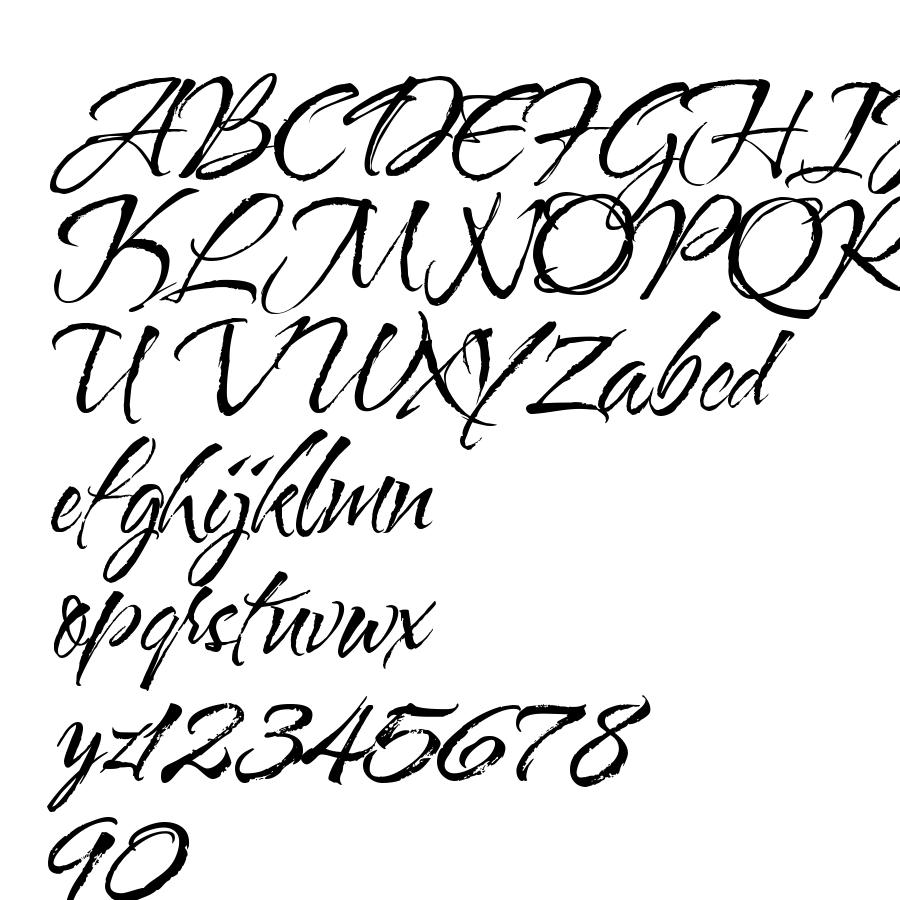 ABCDEFGHIJ
KLMNOPQR
UVWXYZabcd
efghijklmn
opqrstuvwx
yz12345678
90